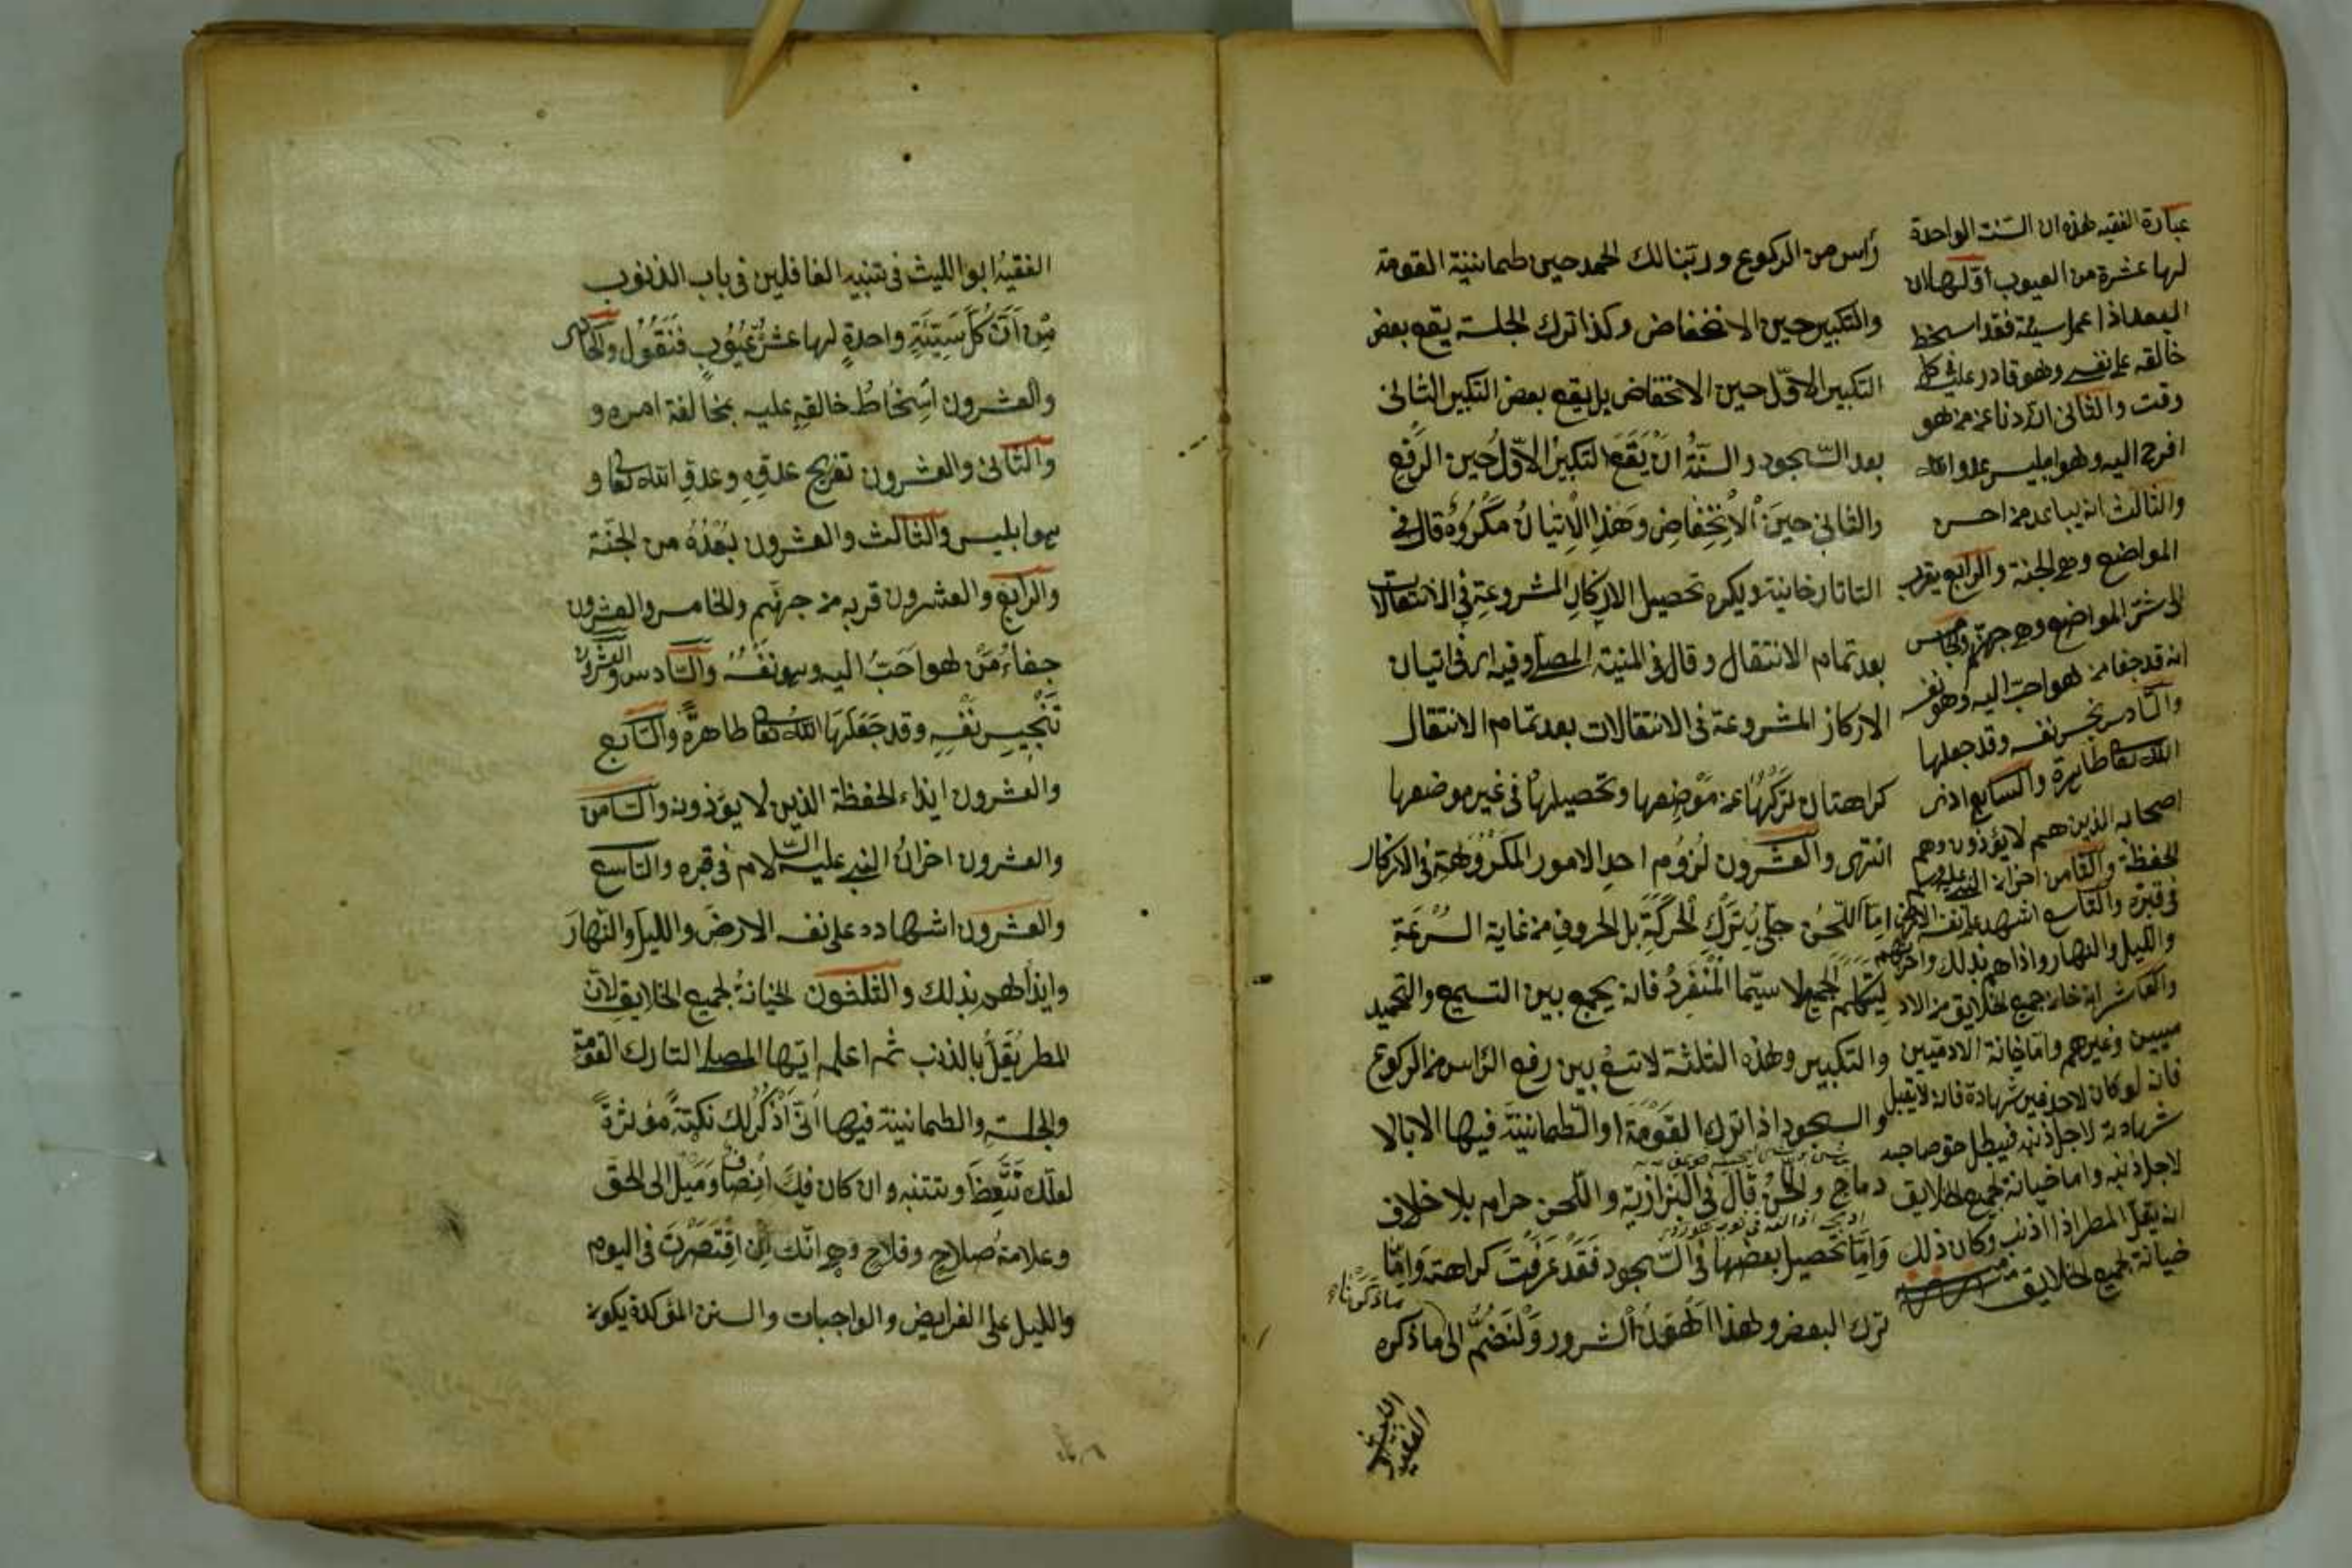 رأس من الركوع وربنا لك الحمد حين طمانينة القومة
والتكبير حين الانخفاض وكذا ترك الجلسة يقع بعض
التكبير الاوّل حين الانخفاض بل يقع بعض التكبير الثانى
بعد السّجود والسنّةُ انْ يَقَعَ التكبيرُ الاوّل حين الرفع
والثانى حينَ الْاِنْخِفاضِ وَهَذا الْاِتيانُ مَكْرُوهٌ قال فى
التاتارخانية ويكره تحصيل الاذكار المشروعةِ فى الانتقالات
بعد تمام الانتقال وقال فى المنية المصلى وفيه اى فى اتيان
الاذكار المشروعة فى الانتقالات بعد تمام الانتقال
كراهتان تركُهَا عن مَوْضِعِها وتحصيلها فى غير موضعها
انتهى والعشرون لُزُوم احدِ الامور المكْرُوهَةِ فى الاذكار
امّا اللّحنُ حتّى يُتركَ الحركَةِ بل الحروفِ من غاية السُرْعَةِ
الجميع لا سيّما الْمُنْفَرِدُ فانه يجمع بين التسميع والتحميد
والتكبير وهذه الثلثة لا تسعُ بين رفع الرّأس من الركوع
والسجود اذا ترك القَوْمَةَ او الطمانينَةَ فيها الا بالا
دماج واللحنُ قال فى البزازيّة واللّحن حرام بلا خلاف
وَامّا تحصيل بعضها فى السّجود فَقَدْ عَرَفْتَ كراهته وَامّا
ترك البعض ولهذا اَهْوَنُ الشرور وَلْنَضُمَّ الى ما ذكره
ما ذكرنا
عبارة الفقيه هذه ان السّئة الواحدة
لها عشرة من العيوب اوّلها ان
العبد اذا عمل سيئة فقد اسخط
خالقه على نفسه وهو قادر عليه فى كل
وقت والثانى انه
افرح اليه وهو ابليس عدو الله
والثالث انه يباعد من احسن
المواضع وهى الجنة والرابع يقرب
الى شرّ المواضع وهى جهنّم والخامس
انه قد جفا من هو احبّ اليه وهو نفسه
والسّادس نجس نفسه وقد جعلها
الله تعا طاهرة والسابع اذى
اصحابه الذين هم لا يؤذون وهم
الحفظة والثامن احزن النبى عليه
فى قبره والتاسع اشهد على نفسه الارض
والليل والنهار واذاهم بذلك واحزنهم
والعاشر انه خان جميع الخلايق من الاد
ميين وغيرهم وامّا خيانة الادميين
فانه لو كان لاحد فيه شهادة فانه لا يقبل
شهادته لاجل ذنبه فيبطل حق صاحبه
لاجل ذنبه واما خيانة لجميع الخلايق
انه يقلّ المطر اذا اذنب وكان ذلك
خيانة لجميع الخلايق
الفقيهُ ابو الليث فى تنبيه الغافلين فى باب الذنوب
مِنْ اَنّ كُلَّ سَيِّئَةٍ واحدةٍ لها عشرُ عُيُوبٍ فَنَقُولُ والحادى
والعشرون اَسْخَاطُ خالقهِ عليه بمخالفة امره و
والثّانى والعشرون تفريح عدوّهِ وعدوّ الله تعا و
هو ابليس والثالث والعشرون بُعْدُهُ من الجنّة
والرابع والعشرون قربه من جهنّم والخامس والعشرون
جفاءُ مَنْ هو احَبّ اليه وهو نفسُهُ والسّادس والعشرون
تَنْجِيس نَفْسِهِ وقد جَعَلَهَا الله تعا طاهرةً والسّابع
والعشرون ايذاء الحفظة الذين لا يؤذونه والثّامن
والعشرون احزانُ النبى عليه السّلام فى قبره والتاسع
والعشرون اشهاده على نفسه الارضَ والليلَ والنهارَ
وايذائهم بذلك والثلثون الخيانةُ لجميع الخلايق لان
المطر يَقِلُّ بالذنب ثم اعلم ايّها المصلى التارك القومة
والجلسة والطمانينة فيها انّى اَذْكُرُ لك نكتةً مؤثرةً
لعلّك تَتّعِظَ وتتنبه وان كان فيكَ اِنْصافٌ وَمَيْل الى الحق
وعلامةُ صلاحٍ وفلاحٍ وهى انّك اِنِ اقْتَصَرْتَ فى اليوم
والليل على الفرايض والواجبات والسنن المؤكدة يكون